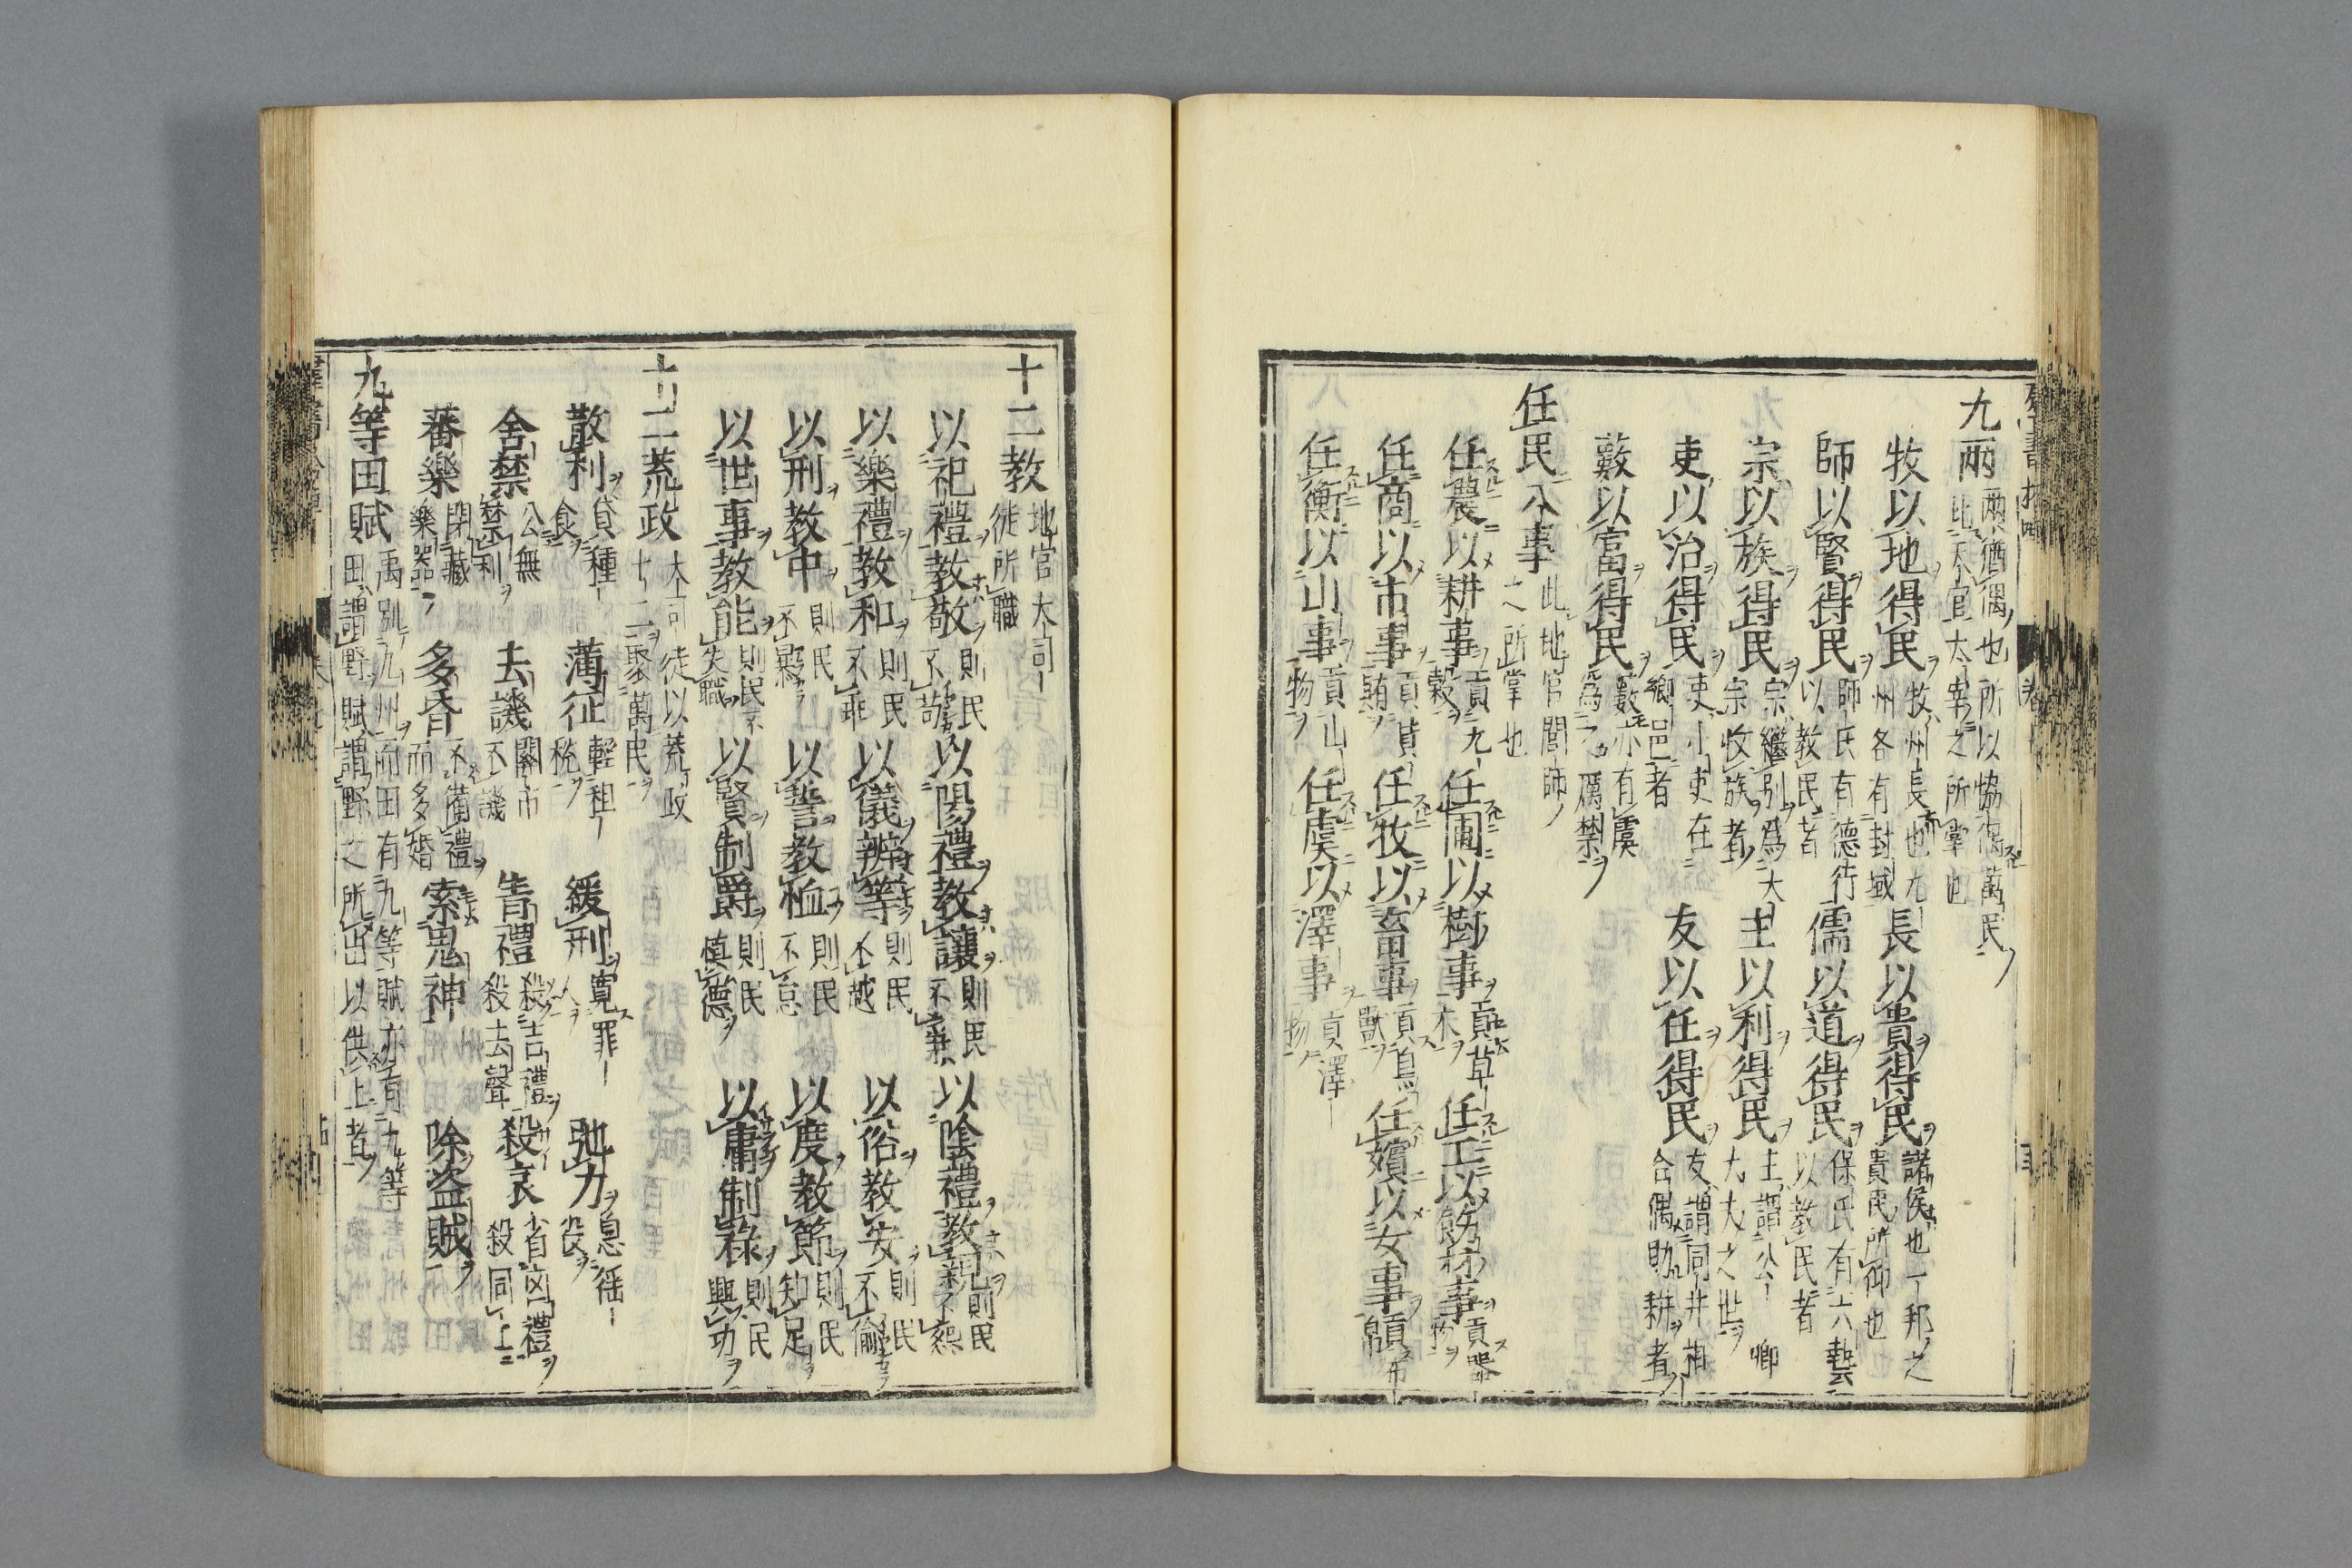 九兩 兩猶偶也所以協偶萬民
此天官太宰之所掌也
牧以地得民 牧州長也九
州各有封域 長以貴得民 諸侯也一邦之
貴民所仰也
師以賢得民 師氏有德行
以教民者 儒以道得民 保氏有六藝
以教民者
宗以族得民 宗繼別爲大
宗收族者 主以利得民 主謂公卿
大夫之世
吏以治得民 吏小吏在
鄉邑者 友以任得民 友謂同井相
合偶助耕者
藪以富得民 藪亦有虞
爲之厲禁
任民八事 此地官閭師
之所掌也
任農以耕事 貢九
穀 任圃以樹事 貢草
木 任工以飭材事 貢器
物
任商以市事 貢貨
賄 任牧以畜事 貢鳥
獸 任嬪以女事 貢布
帛
任衡以山事 貢山
物 任虞以澤事 貢澤
物
十二教 地官大司
徒所職
以祀禮教敬 則民
不苟 以陽禮教讓 則民
不爭 以陰禮教親 則民
不怨
以樂禮教和 則民
不乖 以儀辨等 則民
不越 以俗教安 則民
不偷
以刑教中 則民
不虣 以誓教恤 則民
不怠 以度教節 則民
知足
以世事教能 則民不
失職 以賢制爵 則民
慎德 以庸制祿 則民
興功
十二荒政 大司徒以荒政
十二聚萬民
散利 貸種
食 薄征 輕租
稅 緩刑 寬罪
人 弛力 息徭
役
舍禁 公無
禁利 去譏 關市
不譏 眚禮 殺吉禮
殺去聲 殺哀 省凶禮
殺同上
蕃樂 閉藏
樂器 多昏 不備禮
而多婚 索鬼神 除盜賊
九等田賦 禹別九州而田有九等賦亦有九等
田謂野賦謂野之所出以供上者